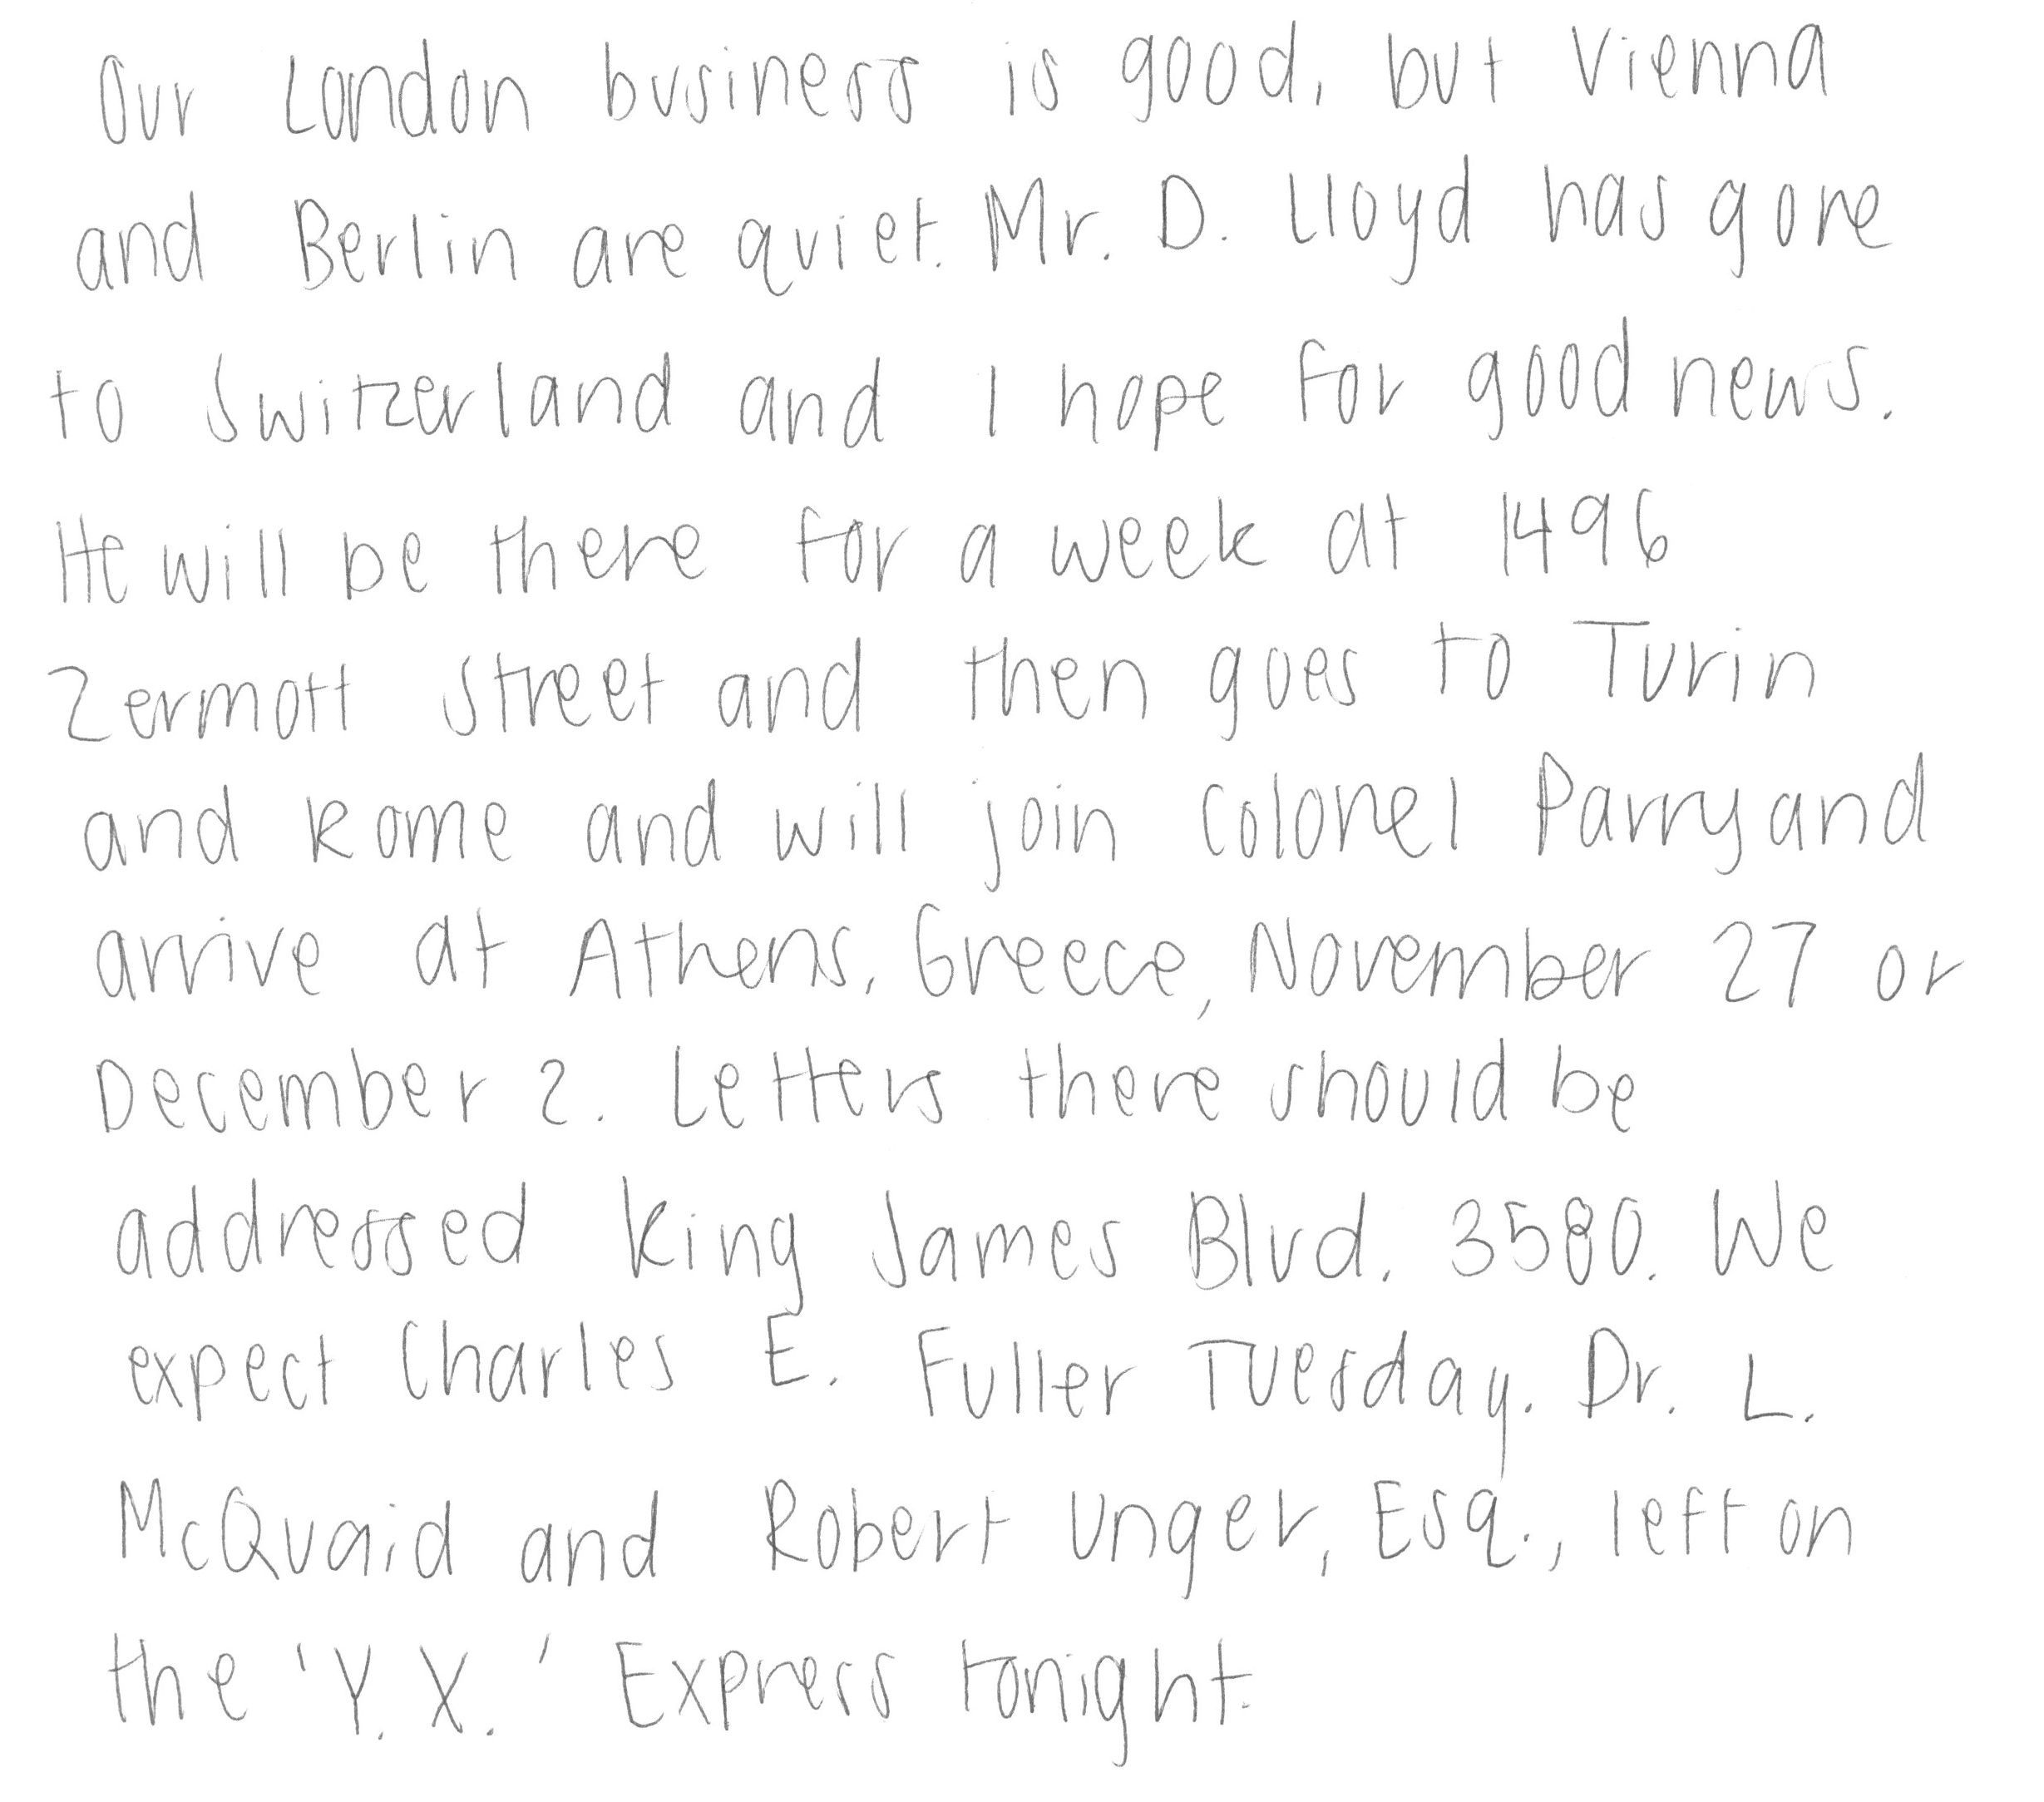 Our London business is good, but Vienna
and Berlin are quiet. Mr. D. Lloyd has gone
to Switzerland and I hope for good news.
He will be there for a week at 1496
Zermott Street and then goes to Turin
and Rome and will join Colonel Parry and
arrive at Athens, Greece, November 27 or
December 2. Letters there should be
addressed King James Blvd. 3580. We
expect Charles E. Fuller Tuesday. Dr. L.
McQuaid and Robert Unger, Esq., left on
the 'Y. X.' Express tonight.